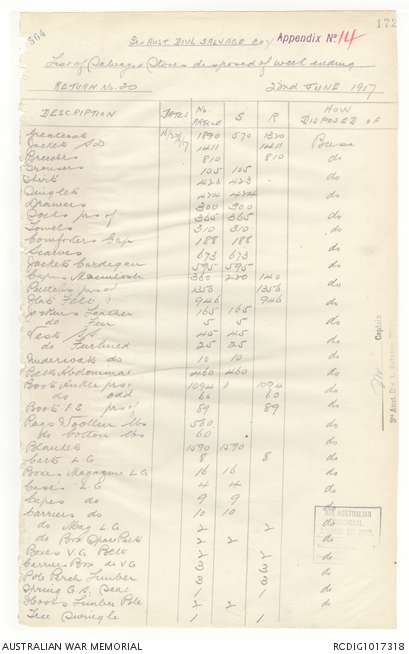 172
564
3rd Aust. Divl Salvage Coy Appendix No 14
List of Salvaged Stores disposed of week ending
Return No. 20 22nd June 1917
Description Dates No S R How Disposed of
Greatcoats 1890 570 1320 Base
Jackets S.D 1411 1411 do
Breeches 810 810 do
Trousers 105 105 do
Shirts 423 423 do
Singlets 424 424 do
Drawers 300 300 do
Socks prs of 365 365 do
Towels 310 310 do
Comforters Cap 188 188 do
Scarves 673 673 do
Jackets Cardigan 595 595 do
Capes Mackintosh 360 220 140 do
Puttees prs 1356 1356 do
Hats Felt 946 946 do
Jerkins Leather 165 165 do
do Fur 5 5 do
Vests 45 45 do
do Furlined 25 25 do
Undercoats do 10 10 do
Belts Abdominal 460 460 do
Boots Ankle prs 1094 1 1094 do
do odd 60 60 do
Boots prs 89 89 do
Rags Woollen lbs 560 do
do Cotton lbs 60 do
Blankets 1290 1290 do
Carts L.G 8 8 do
Boxes Magazine L.G. 16 16 do
Cases L.G. 4 4 do
Capes do 9 9 do
Carriers do 10 10 do
do Mag L.G 2 2 do
do Box Spare Parts 2 2 do
Boxes V.G Belt 2 2 do
Carriers Box do V.G 3 3 do
Pole Perch Limber 3 3 do
Spring G.S. Seat 1 1 do
Hooks Limber Pole 2 2 do
Tree Swingle 1 1 do
Captain
AUSTRALIAN WAR MEMORIAL RCDIG1017318